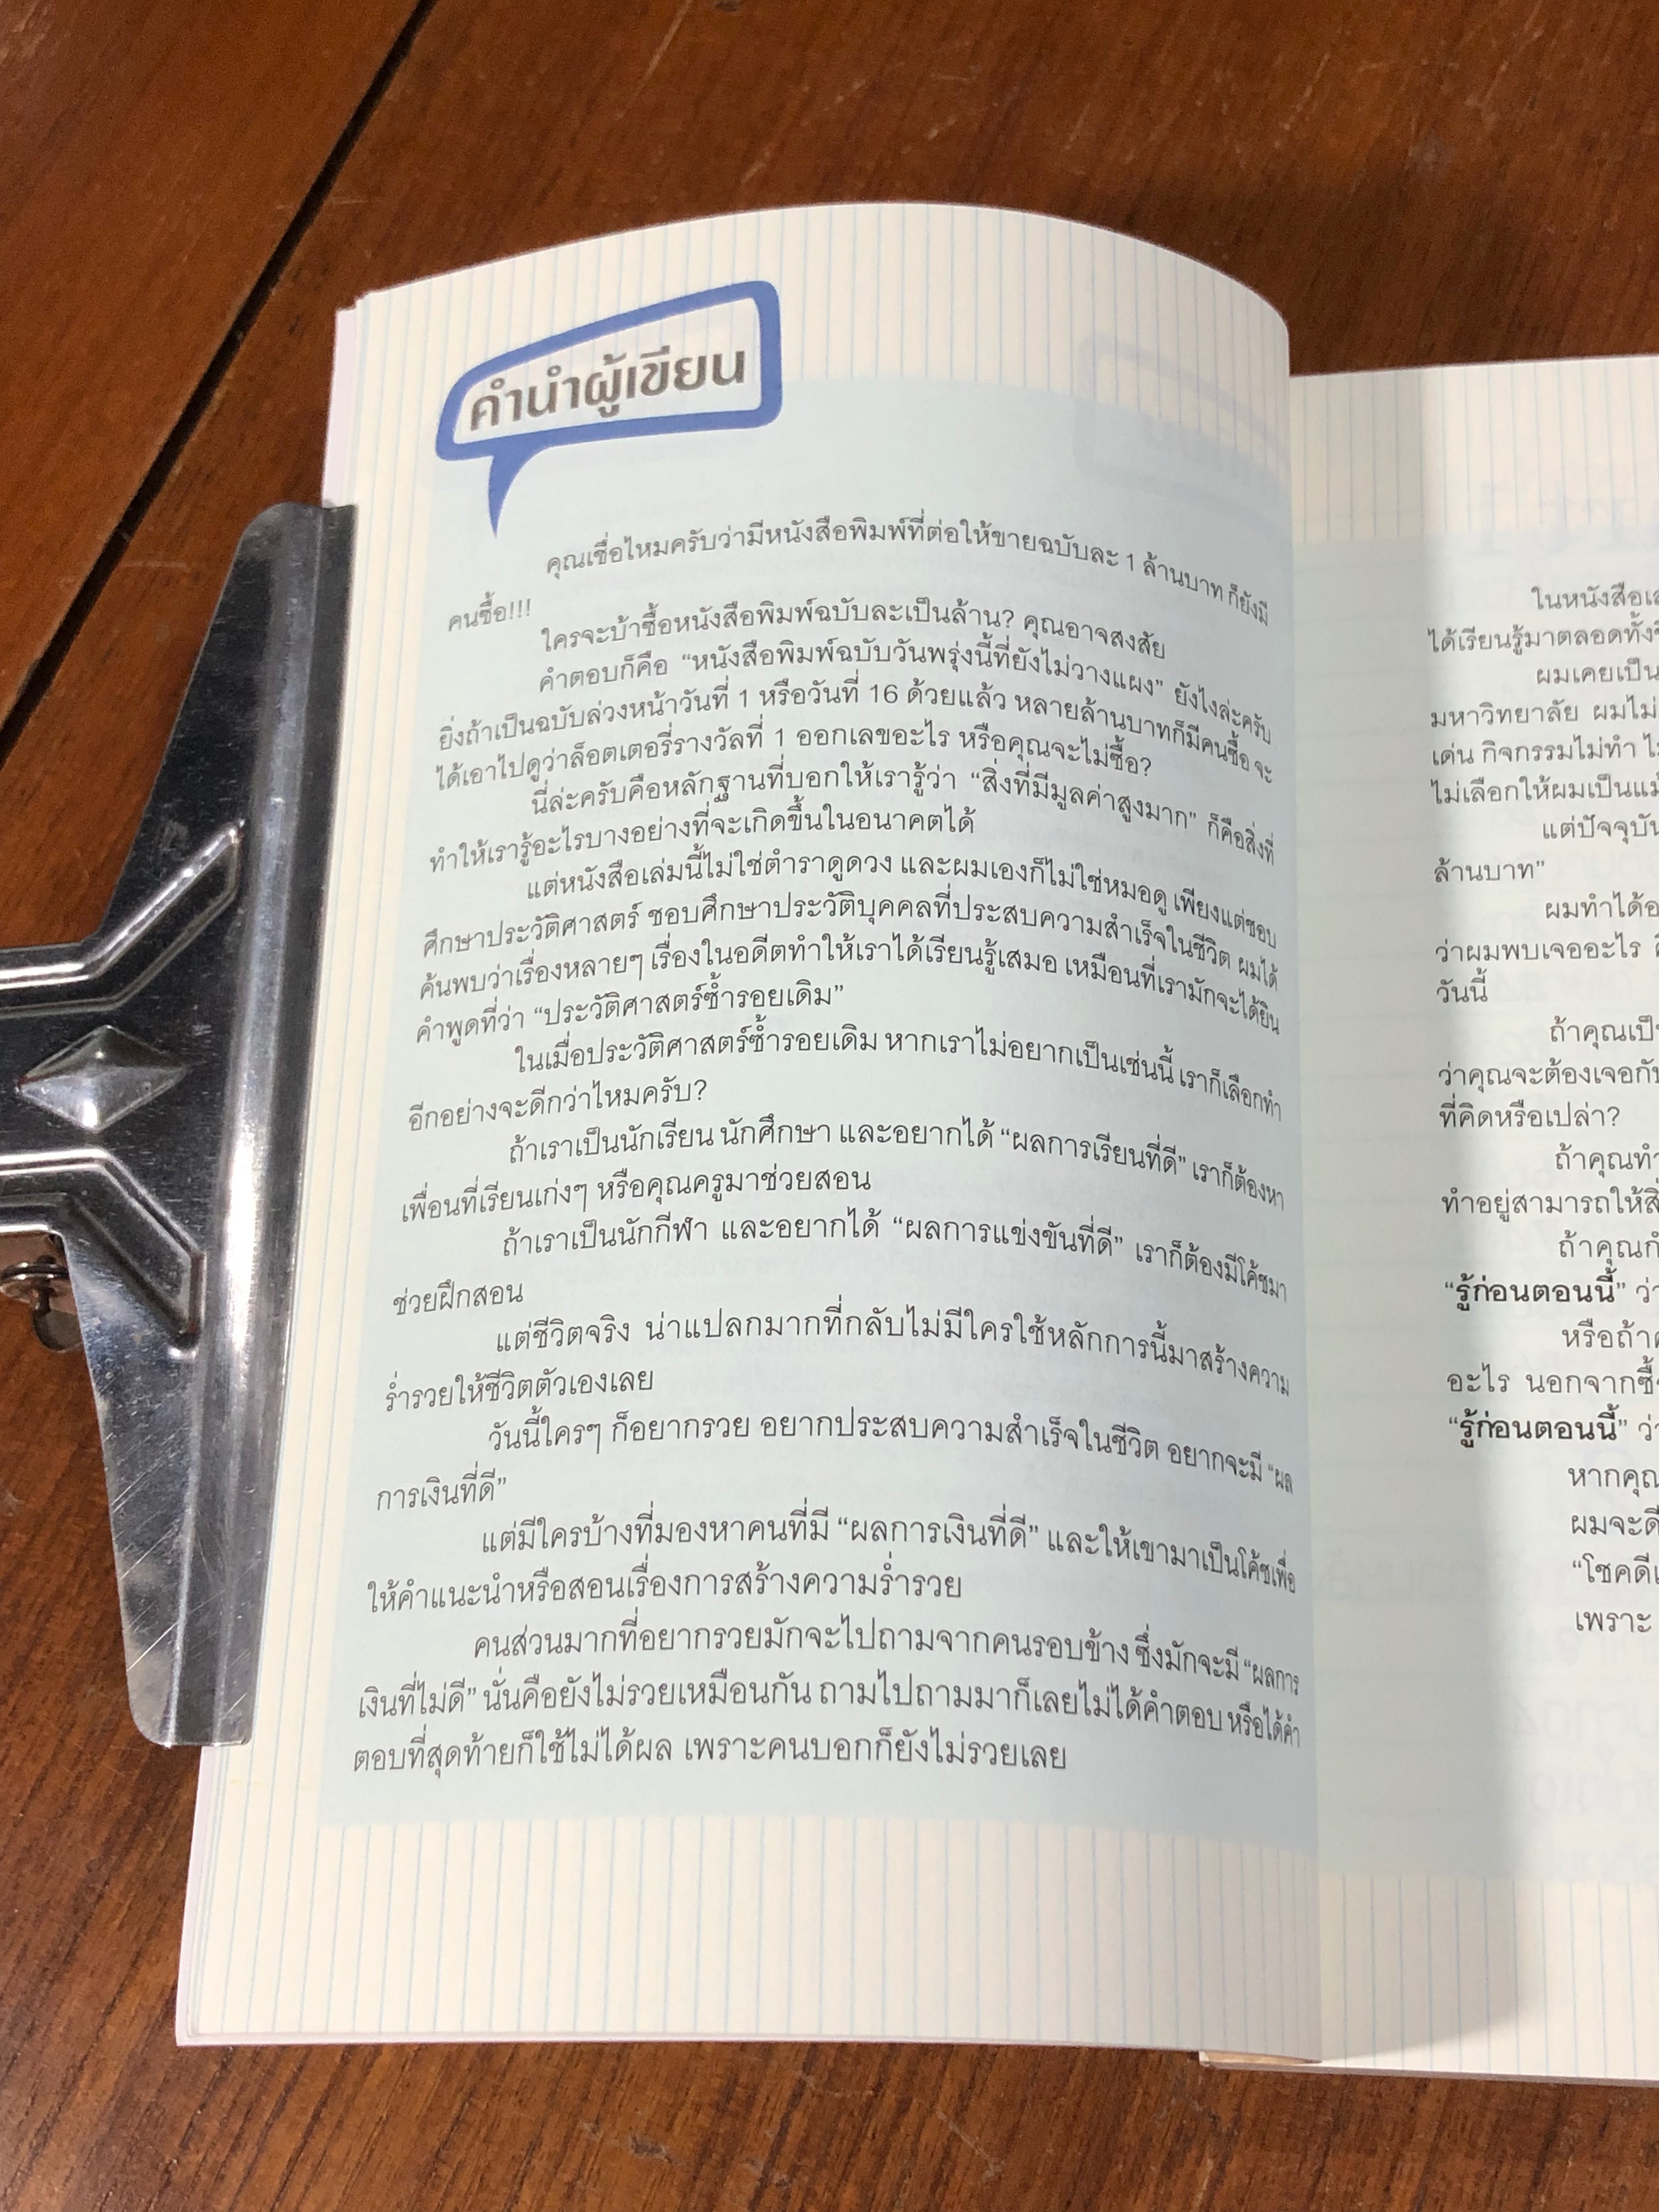 คำนำผู้เขียน
คุณเชื่อไหมครับว่ามีหนังสือพิมพ์ที่ต่อให้ขายฉบับละ 1 ล้านบาท ก็ยังมี
คนซื้อ!!!
ใครจะบ้าซื้อหนังสือพิมพ์ฉบับละเป็นล้าน? คุณอาจสงสัย
คำตอบก็คือ “หนังสือพิมพ์ฉบับวันพรุ่งนี้ที่ยังไม่วางแผง” ยังไงล่ะครับ
ยิ่งถ้าเป็นฉบับล่วงหน้าวันที่ 1 หรือวันที่ 16 ด้วยแล้ว หลายล้านบาทก็มีคนซื้อ จะ
ได้เอาไปดูว่าล็อตเตอรี่รางวัลที่ 1 ออกเลขอะไร หรือคุณจะไม่ซื้อ?
นี่ล่ะครับคือหลักฐานที่บอกให้เรารู้ว่า “สิ่งที่มีมูลค่าสูงมาก” ก็คือสิ่งที่
ทำให้เรารู้อะไรบางอย่างที่จะเกิดขึ้นในอนาคตได้
แต่หนังสือเล่มนี้ไม่ใช่ตำราดูดวง และผมเองก็ไม่ใช่หมอดู เพียงแต่ชอบ
ศึกษาประวัติศาสตร์ ชอบศึกษาประวัติบุคคลที่ประสบความสำเร็จในชีวิต ผมได้
ค้นพบว่าเรื่องหลายๆ เรื่องในอดีตทำให้เราได้เรียนรู้เสมอ เหมือนที่เรามักจะได้ยิน
คำพูดที่ว่า “ประวัติศาสตร์ซ้ำรอยเดิม”
ในเมื่อประวัติศาสตร์ซ้ำรอยเดิม หากเราไม่อยากเป็นเช่นนี้ เราก็เลือกทำ
อีกอย่างจะดีกว่าไหมครับ?
ถ้าเราเป็นนักเรียน นักศึกษา และอยากได้ “ผลการเรียนที่ดี” เราก็ต้องหา
เพื่อนที่เรียนเก่งๆ หรือคุณครูมาช่วยสอน
ถ้าเราเป็นนักกีฬา และอยากได้ “ผลการแข่งขันที่ดี” เราก็ต้องมีโค้ชมา
ช่วยฝึกสอน
แต่ชีวิตจริง น่าแปลกมากที่กลับไม่มีใครใช้หลักการนี้มาสร้างความ
ร่ำรวยให้ชีวิตตัวเองเลย
วันนี้ใครๆ ก็อยากรวย อยากประสบความสำเร็จในชีวิต อยากจะมี “ผล
การเงินที่ดี”
แต่มีใครบ้างที่มองหาคนที่มี “ผลการเงินที่ดี” และให้เขามาเป็นโค้ชเพื่อ
ให้คำแนะนำหรือสอนเรื่องการสร้างความร่ำรวย
คนส่วนมากที่อยากรวยมักจะไปถามจากคนรอบข้าง ซึ่งมักจะมี “ผลการ
เงินที่ไม่ดี” นั่นคือยังไม่รวยเหมือนกัน ถามไปถามมาก็เลยไม่ได้คำตอบ หรือได้คำ
ตอบที่สุดท้ายก็ใช้ไม่ได้ผล เพราะคนบอกก็ยังไม่รวยเลย
ในหนังสือ
ได้เรียนรู้มาตลอด
ผมเคยเป็น
มหาวิทยาลัย ผมไม่
เด่น กิจกรรมไม่ทำ
ไม่เลือกให้ผมเป็น
แต่ปัจจุบัน
ล้านบาท”
ผมทำได้
ว่าผมพบเจออะไร
วันนี้
ถ้าคุณเป็น
ว่าคุณจะต้องเจอกับ
ที่คิดหรือเปล่า?
ถ้าคุณทำ
ทำอยู่สามารถให้
ถ้าคุณ
“รู้ก่อนตอนนี้” ว่า
หรือถ้า
อะไร นอกจาก
“รู้ก่อนตอนนี้” ว่า
หากคุณ
ผมจะ
“โชคดี
เพราะ